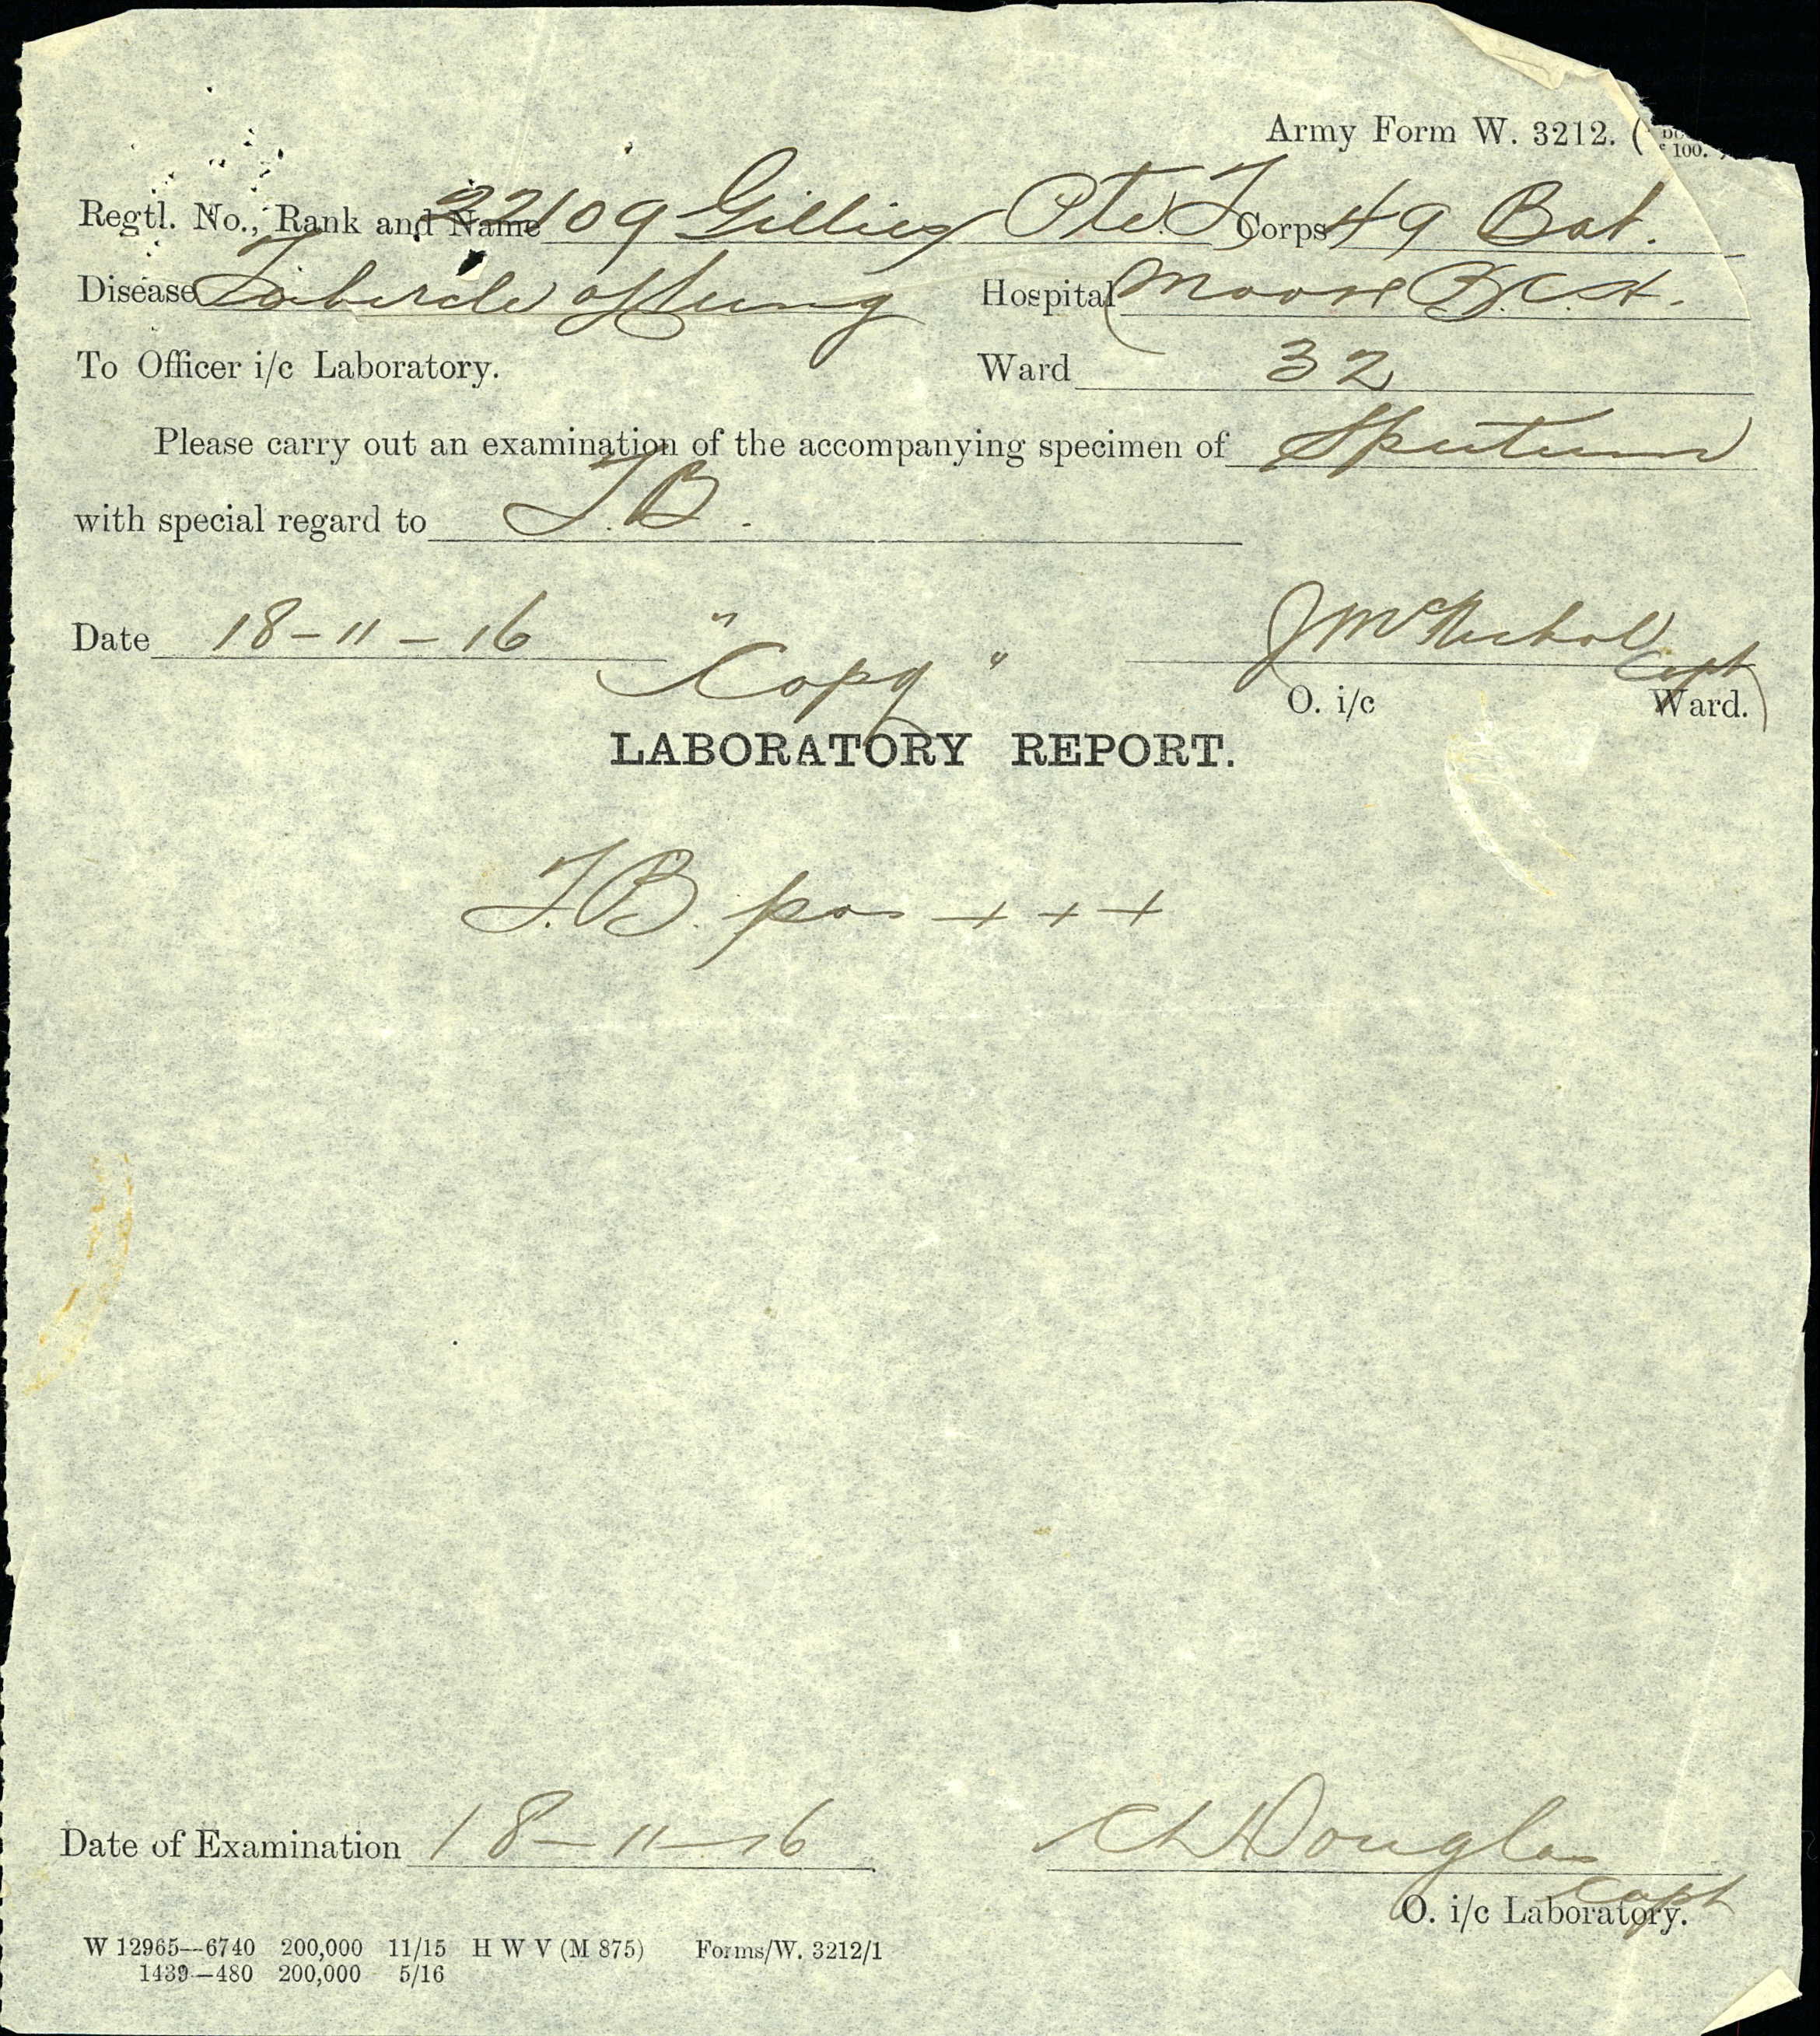 Army Form W. 3212. (
100.
Regtl. No., Rank and Name 22109 Gillies Pte. J Corps 49 Bat.
Disease Tubercle of Lung Hospital Moore B.C.H.
To Officer i/c Laboratory. Ward 32
Please carry out an examination of the accompanying specimen of Sputum
with special regard to T.B.
Date 18-11-16 "Copy" J McNichol Capt
O. i/c Ward.
LABORATORY REPORT.
T.B. pos +++
Date of Examination 18-11-16 Douglas Capt
O. i/c Laboratory.
W 12965—6740 200,000 11/15 H W V (M 875) Forms/W. 3212/1
1439—480 200,000 5/16